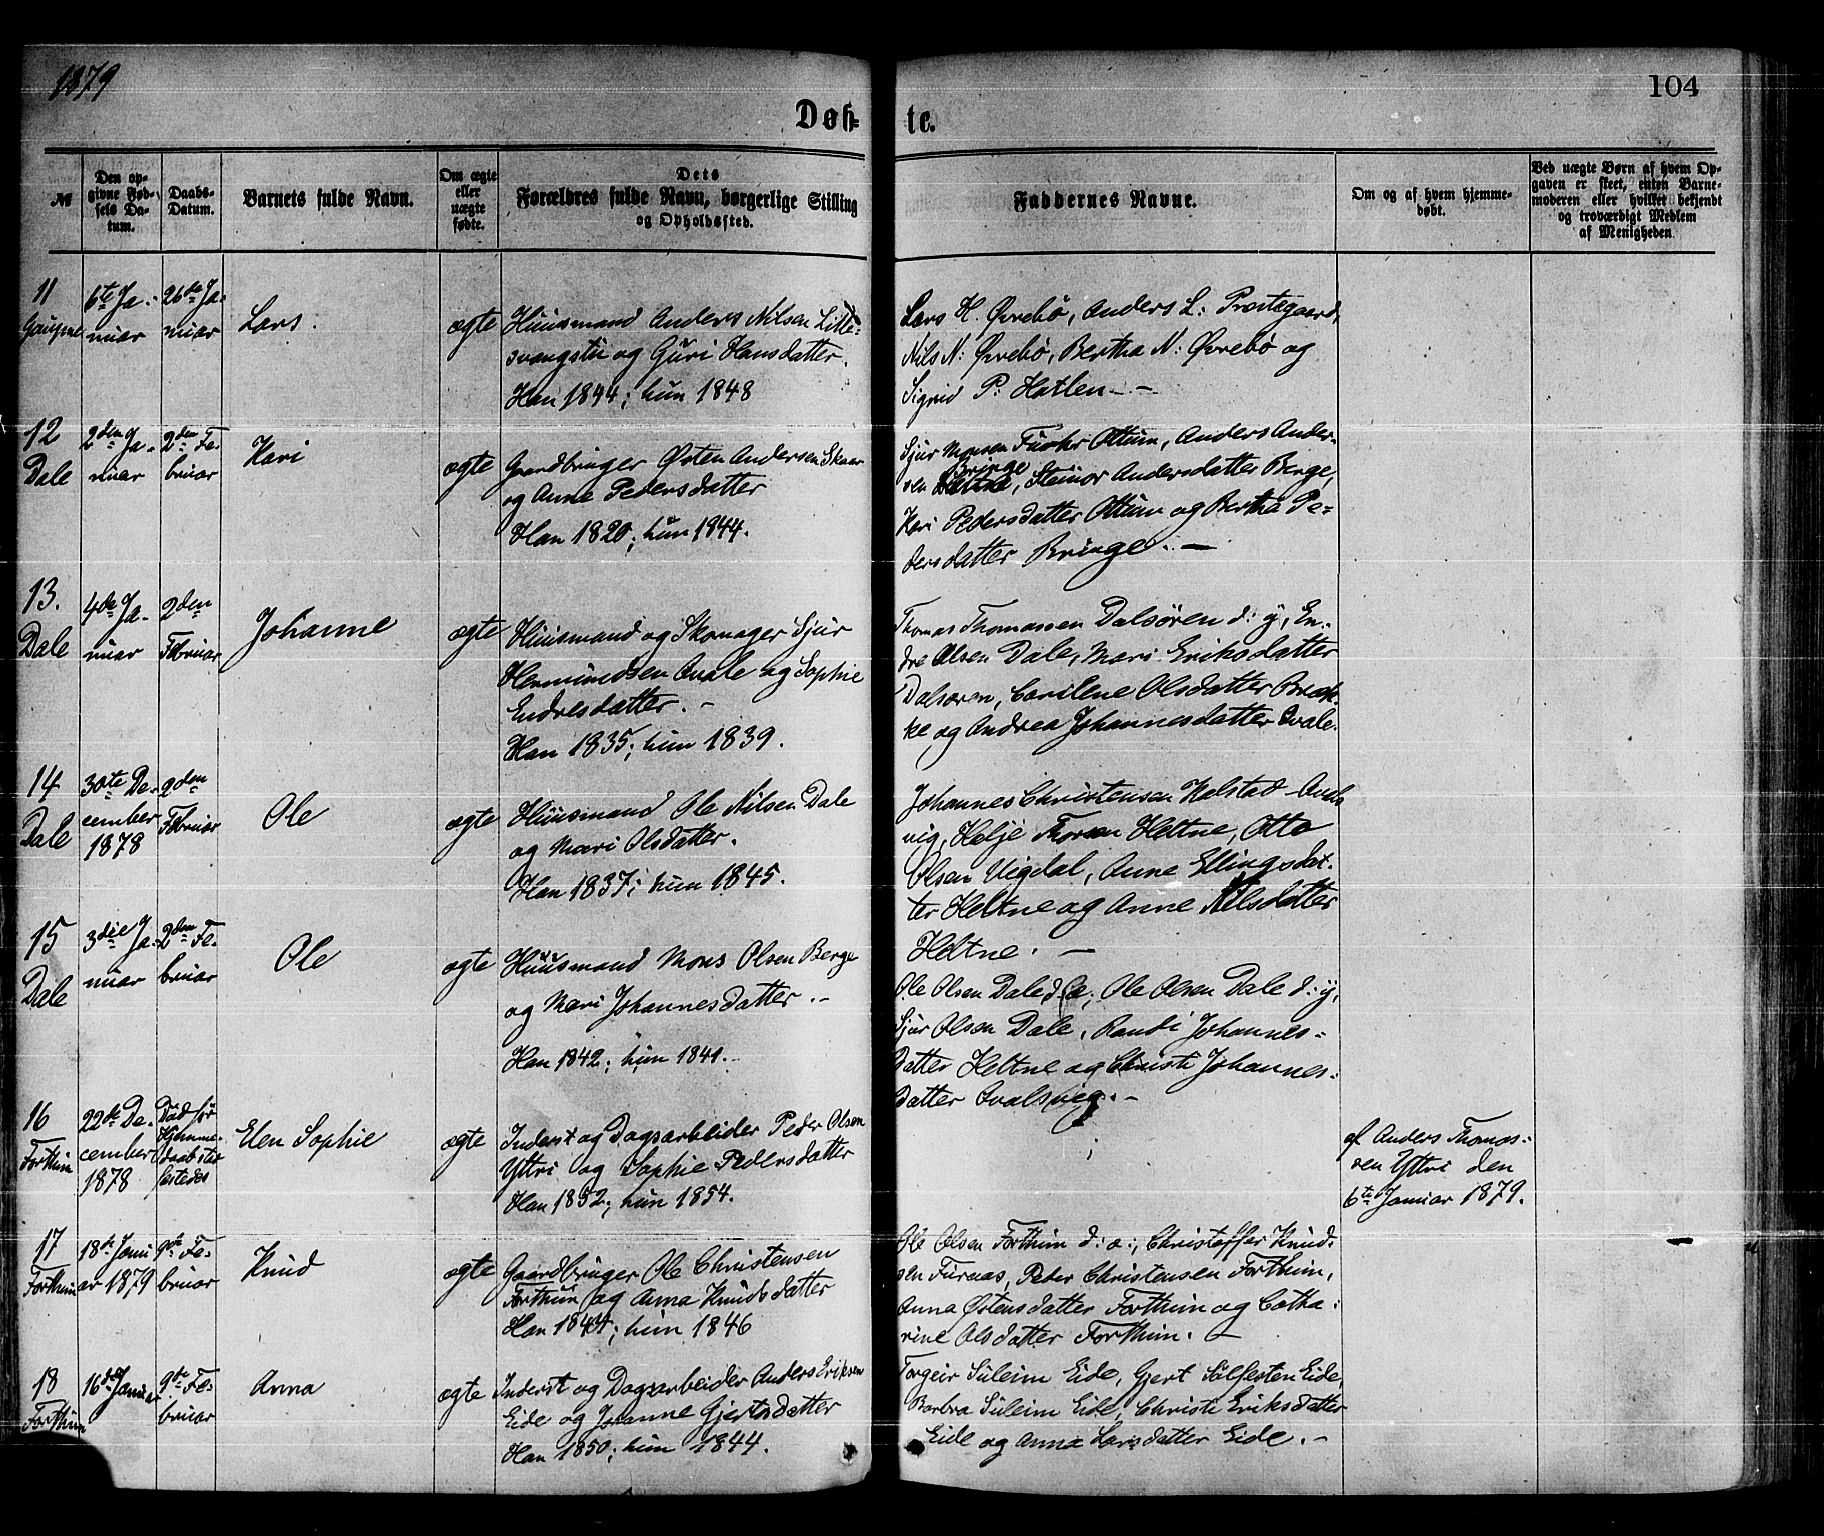 1879
104
Døb-
te.
№
Den op-
givne Fød-
sels Da-
tum.
Daabs-
Datum.
Barnets fulde Navn.
Om ægte
eller
uægte
fødte.
Dets
Forældres fulde Navn, borgerlige Stilling
og Opholdssted.
Faddernes Navne.
Om og af hvem hjemme-
døbt.
Ved uægte Børn af hvem Op-
gaven er skeet, enten Barne-
moderen eller hvilket bekjendt
og troværdigt Medlem
af Menigheden.
11
Gaupne
6te Ja-
nuar
26de Ja-
nuar
Lars.
ægte
Huusmand Anders Nilsen Litle-
svangstu og Guri Hansdatter.
Han 1844; hun 1848
Lars H. Øvrebø, Anders L: Prestegaard,
Nils N: Øvrebø, Bertha N: Øvrebø og
Sigrid P: Hatlen. —
12
Dale
2den Ja-
nuar
2den Fe-
bruar
Kari
ægte
Gaardbruger Østen Andersen Skaar
og Anne Pedersdatter
Han 1820; hun 1844.
Sjur Monsen Ottum, Anders Ander-
sen Bringe, Steinor Andersdatter Berge,
Kari Pedersdatter Ottum og Bertha Pe-
dersdatter Bringe. —
13.
Dale
4de Ja-
nuar
2den
Februar
Johanne
ægte
Huusmand og Skomager Sjur
Hermundsen Qvale og Sophie
Endresdatter. -
Han 1835; hun 1839.
Thomas Thomassen Dalsøren d: y, En-
dre Olsen Dale, Mari Eriksdatter
Dalsøren, Carilene Olsdatter Bræk-
ke og Andrea Johannesdatter Qvale.
14
Dale
30te De-
cember
1878
2den
Februar
Ole
ægte
Huusmand Ole Nilsen Dale
og Mari Olsdatter.
Han 1837; hun 1845.
Johannes Christensen Kalstad
vig, Helje Heltne, Otto
Olsen Vigdal, Anne Ellingsdat-
ter Heltne og Anne Nilsdatter
Heltne. —
15
Dale
3die Ja-
nuar
2den Fe-
bruar
Ole
ægte
Huusmand Mons Olsen Berge
og Mari Johannesdatter. -
Han 1842; hun 1841.
Ole Olsen Dale d: æ, Ole Olsen Dale d: y,
Sjur Olsen Dale, Randi Johannes-
datter Heltne og Christi Johannes-
datter Qvalsvig. -
16
Forthun
22de De-
cember
1878
Død før
Hjemme-
daab sted-
fæstedes
Elen Sophie
ægte
Inderst og Dagsarbeider Peder Olsen
Yttri og Sophie Pedersdatter
Han 1852; hun 1854.
af Anders Thomas-
sen Yttri den
6te Januar 1879.
17
Forthun
18de Janu-
ar 1879
9de Fe-
bruar
Knud
ægte
Gaardbruger Ole Christensen
Forthun og Anna Knudsdatter
Han 1844; hun 1846
Ole Olsen Forthun d: æ:, Christoffer Knud-
sen Furaas, Peder Christensen Forthun,
Anna Østensdatter Forthun og Catha-
rine Olsdatter Forthun. —
18
Forthun
16de Januar
9de Fe-
bruar
Anna
ægte
Inderst og Dagsarbeider Anders Eriksen
Eide og Johanne Gjertsdatter
Han 1850; hun 1844.
Torgeir Suleim Eide, Gjert Sølfesten Eide,
Barbra Suleim Eide, Christi Eriksdatter
Eide og Anna Larsdatter Eide. -